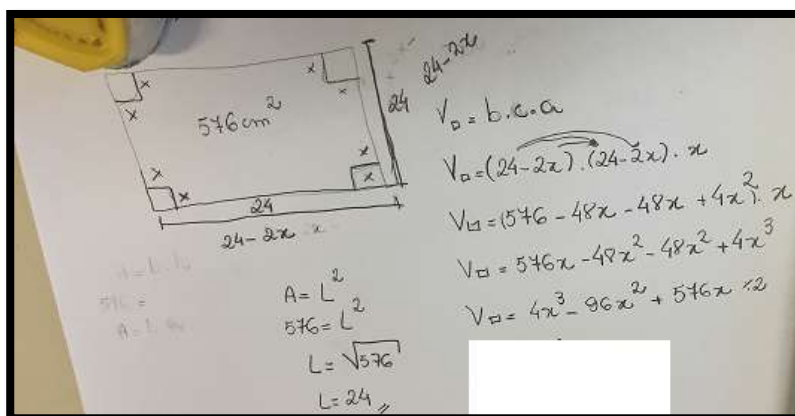 x
x
x
x
576 cm²
x
x
x
x
24
24-2x
24
24-2x
A = L²
576 = L²
L = √576
L = 24 //
V▫ = b.c.a
V▫ = (24-2x).(24-2x).x
V▫ = (576 - 48x - 48x + 4x²).x
V▫ = 576x - 48x² - 48x² + 4x³
V▫ = 4x³ - 96x² + 576x ÷2
576 =